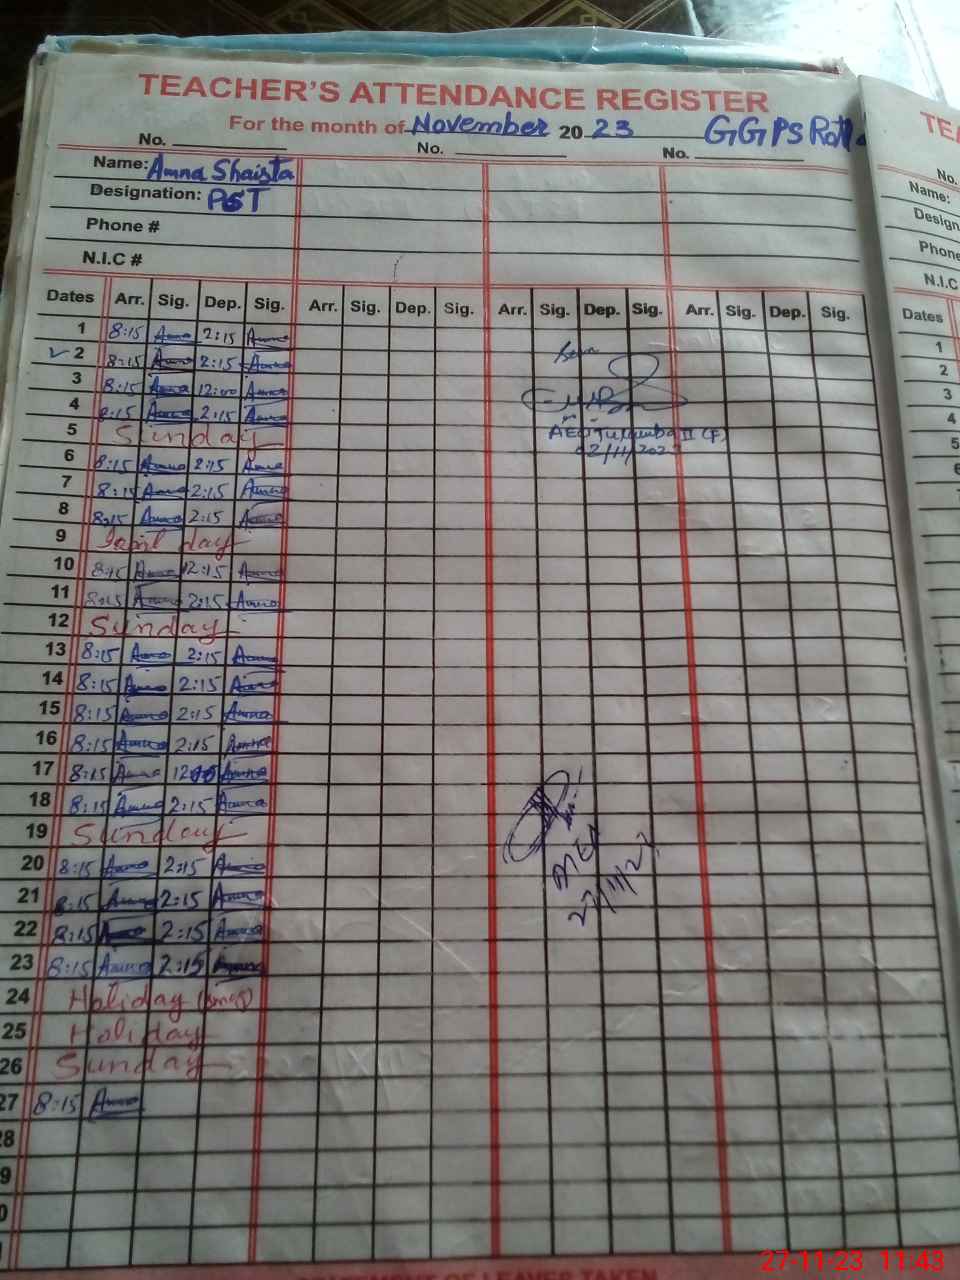 TEACHER'S ATTENDANCE REGISTER
For the month of November 2023 GGPS
No. No. No.
Name: Amna Shaista
Designation: PST
Phone #
N.I.C #
Dates Arr. Sig. Dep. Sig. Arr. Sig. Dep. Sig. Arr. Sig. Dep. Sig. Arr. Sig. Dep. Sig.
1 8:15 Amna 2:15 Amna
2 8:15 Amna 2:15 Amna
3 8:15 Amna 12:00 Amna
4 8:15 Amna 2:15 Amna
5 Sunday
6 8:15 Amna 2:15 Amna
7 8:15 Amna 2:15 Amna
8 8:15 Amna 2:15 Amna
9 Iqbal day
10 8:15 Amna 12:15 Amna
11 8:15 Amna 2:15 Amna
12 Sunday
13 8:15 Amna 2:15 Amna
14 8:15 Amna 2:15 Amna
15 8:15 Amna 2:15 Amna
16 8:15 Amna 2:15 Amna
17 8:15 Amna Amna
18 8:15 Amna 2:15 Amna
19 Sunday
20 8:15 Amna 2:15 Amna
21 8:15 Amna 2:15 Amna
22 8:15 Amna 2:15 Amna
23 8:15 Amna 2:15 Amna
24 Holiday (smog)
25 Holiday
26 Sunday
27 8:15 Amna
28
AEO Tulamba II (F)
02/11/2023
MEA
27/11/23
TEA
No.
Name:
Design
Phone
N.I.C
Dates
1
2
3
4
5
6
27-11-23 11:43